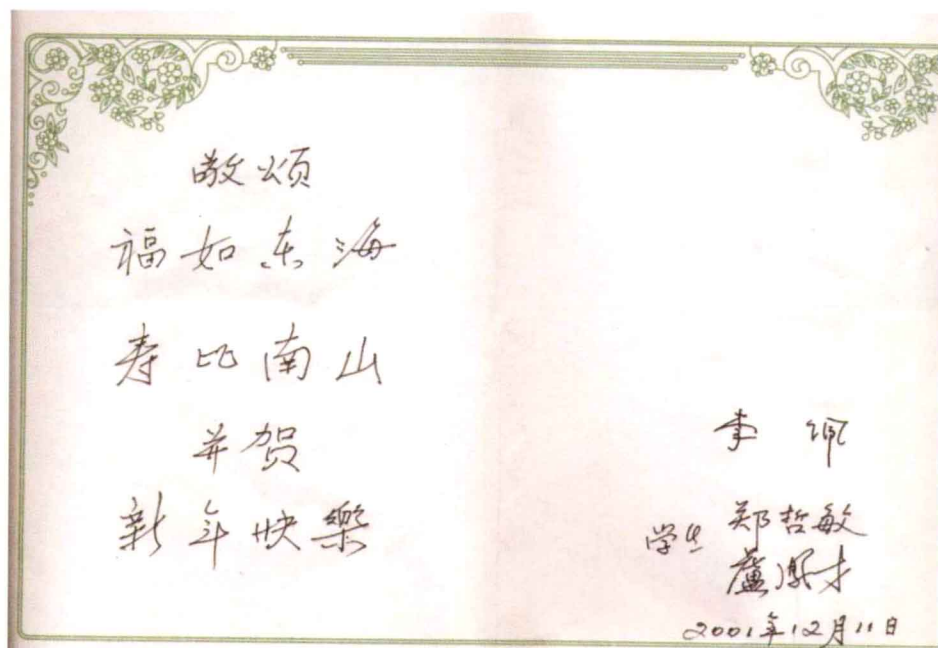 敬颂
福如东海
寿比南山
并贺
新年快樂
李佩
学生 郑哲敏
蘆鳳才
2001年12月11日